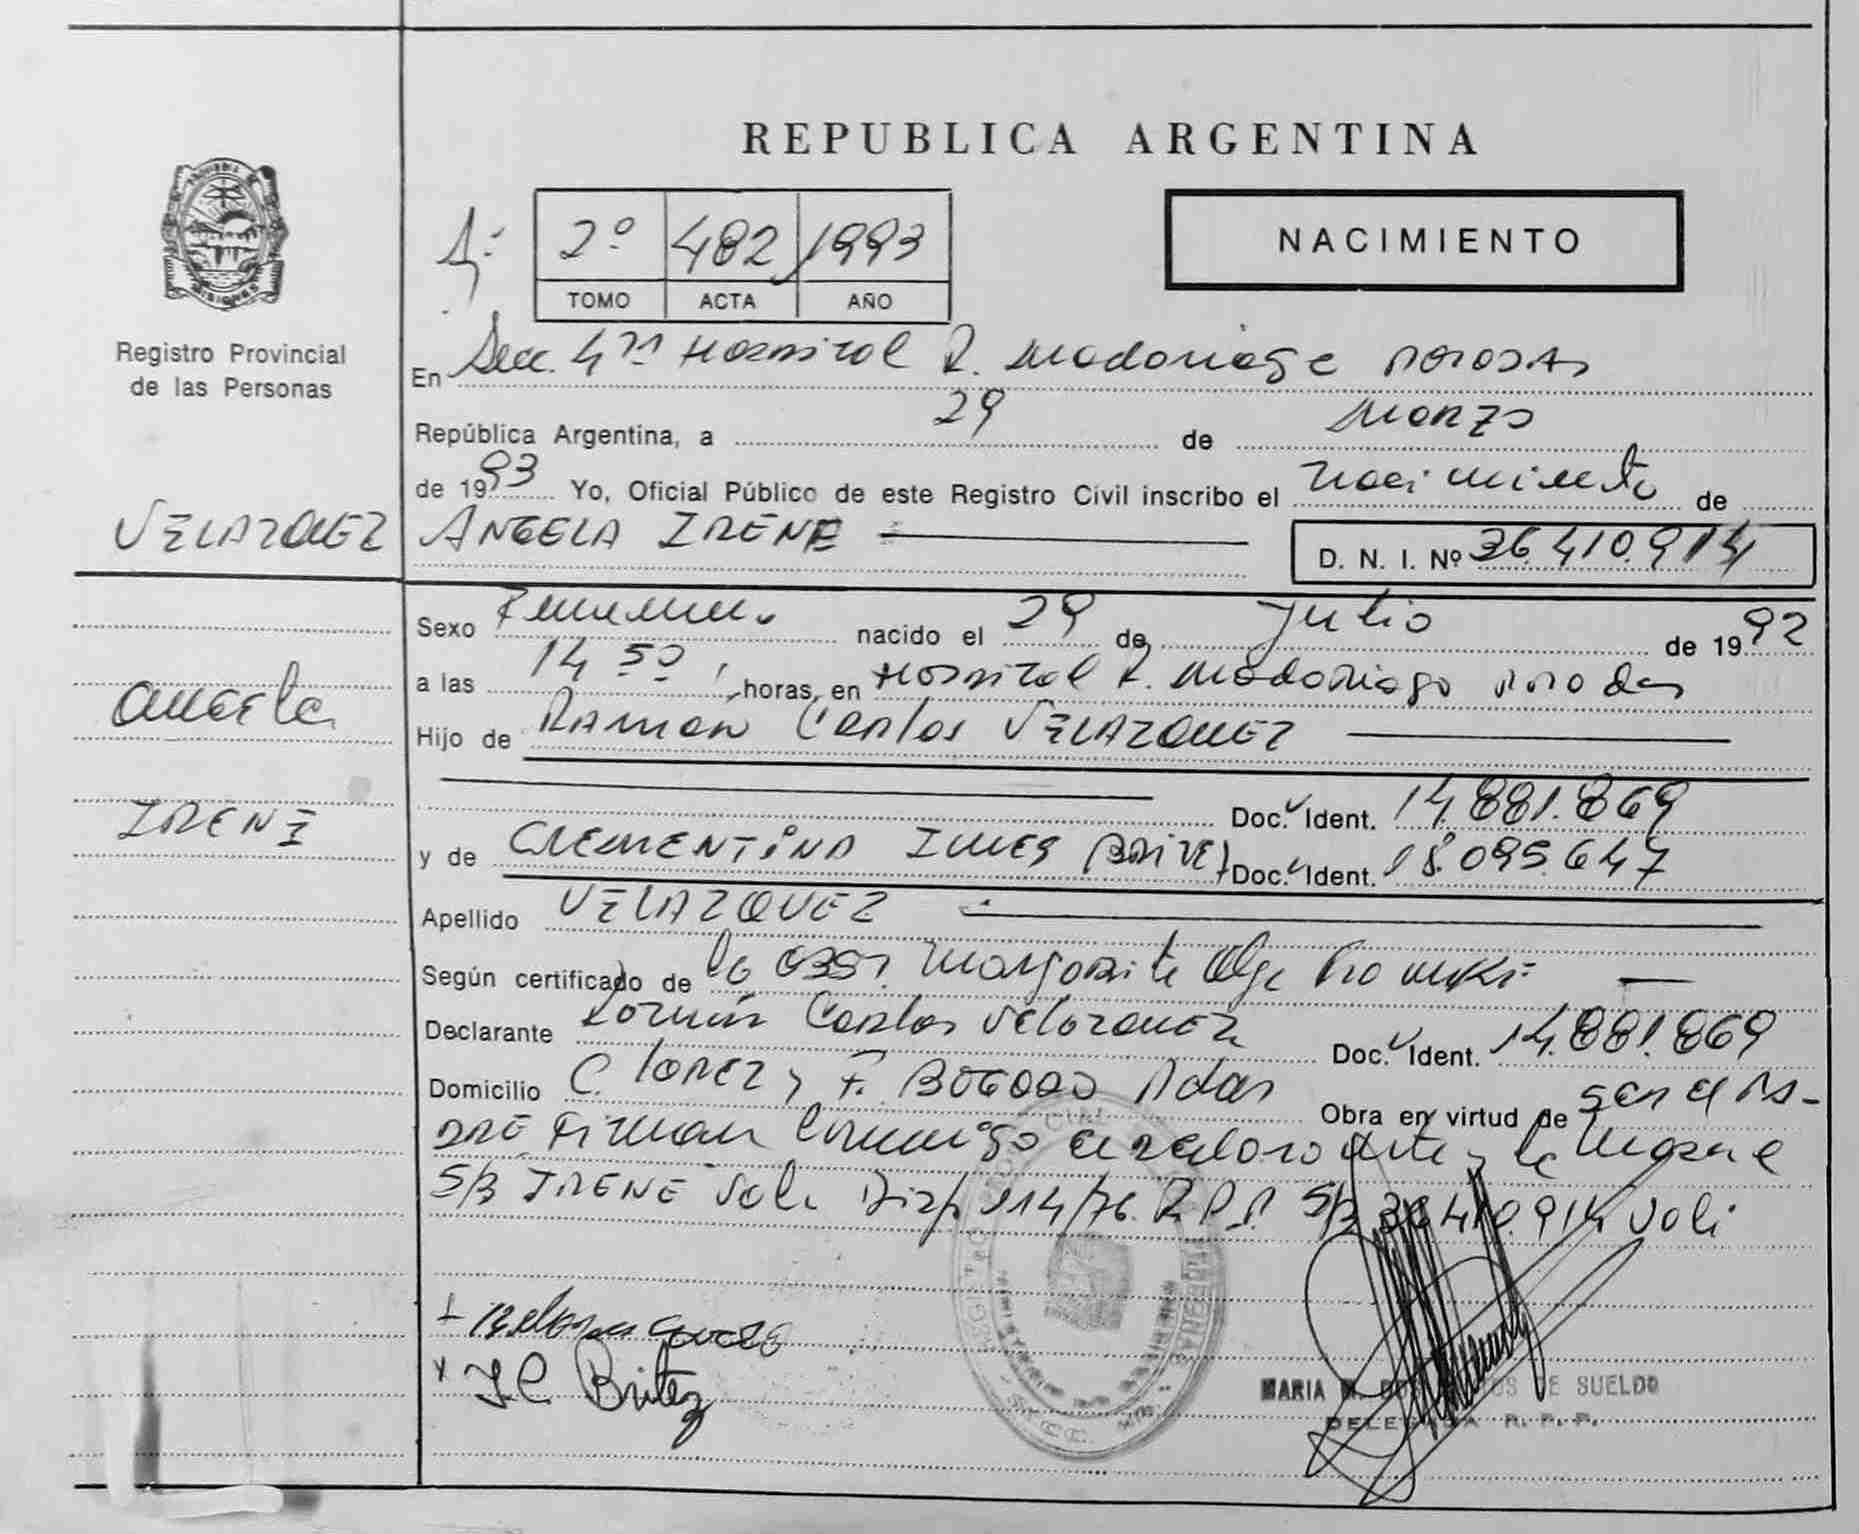 REPUBLICA ARGENTINA
PROVINCIA DE MISIONES
Registro Provincial
de las Personas
1ª 2º 482 1993
TOMO ACTA AÑO
NACIMIENTO
En Secc. 4ta Hospital R. Madariaga Posadas
República Argentina, a 29 de Marzo
de 1993 Yo, Oficial Público de este Registro Civil inscribo el nacimiento de
VELAZQUEZ ANGELA IRENE
D. N. I. Nº 36.410.914
Sexo Femenino nacido el 29 de Julio de 1992
a las 14 50 horas, en Hospital R. Madariaga Posadas
Angela
Hijo de Ramón Carlos VELAZQUEZ
Doc. Ident. 14.881.869
IRENE
y de CLEMENTINA INES BRITEZ Doc. Ident. 18.095.647
Apellido VELAZQUEZ
Según certificado de la Obst. Margarita Olga
Declarante Ramón Carlos Velazquez Doc. Ident. 14.881.869
Domicilio C. LOPEZ y F. BOGADO Pdas Obra en virtud de ser el pa-
dre Firman Conmigo el declarante y la Madre
S/B IRENE Vale Disp. 114/76 R.P.P. S/B 36.410.914 Vale
I.C. Britez
MARIA M. DOS SANTOS DE SUELDO
DELEGADA R. P. P.